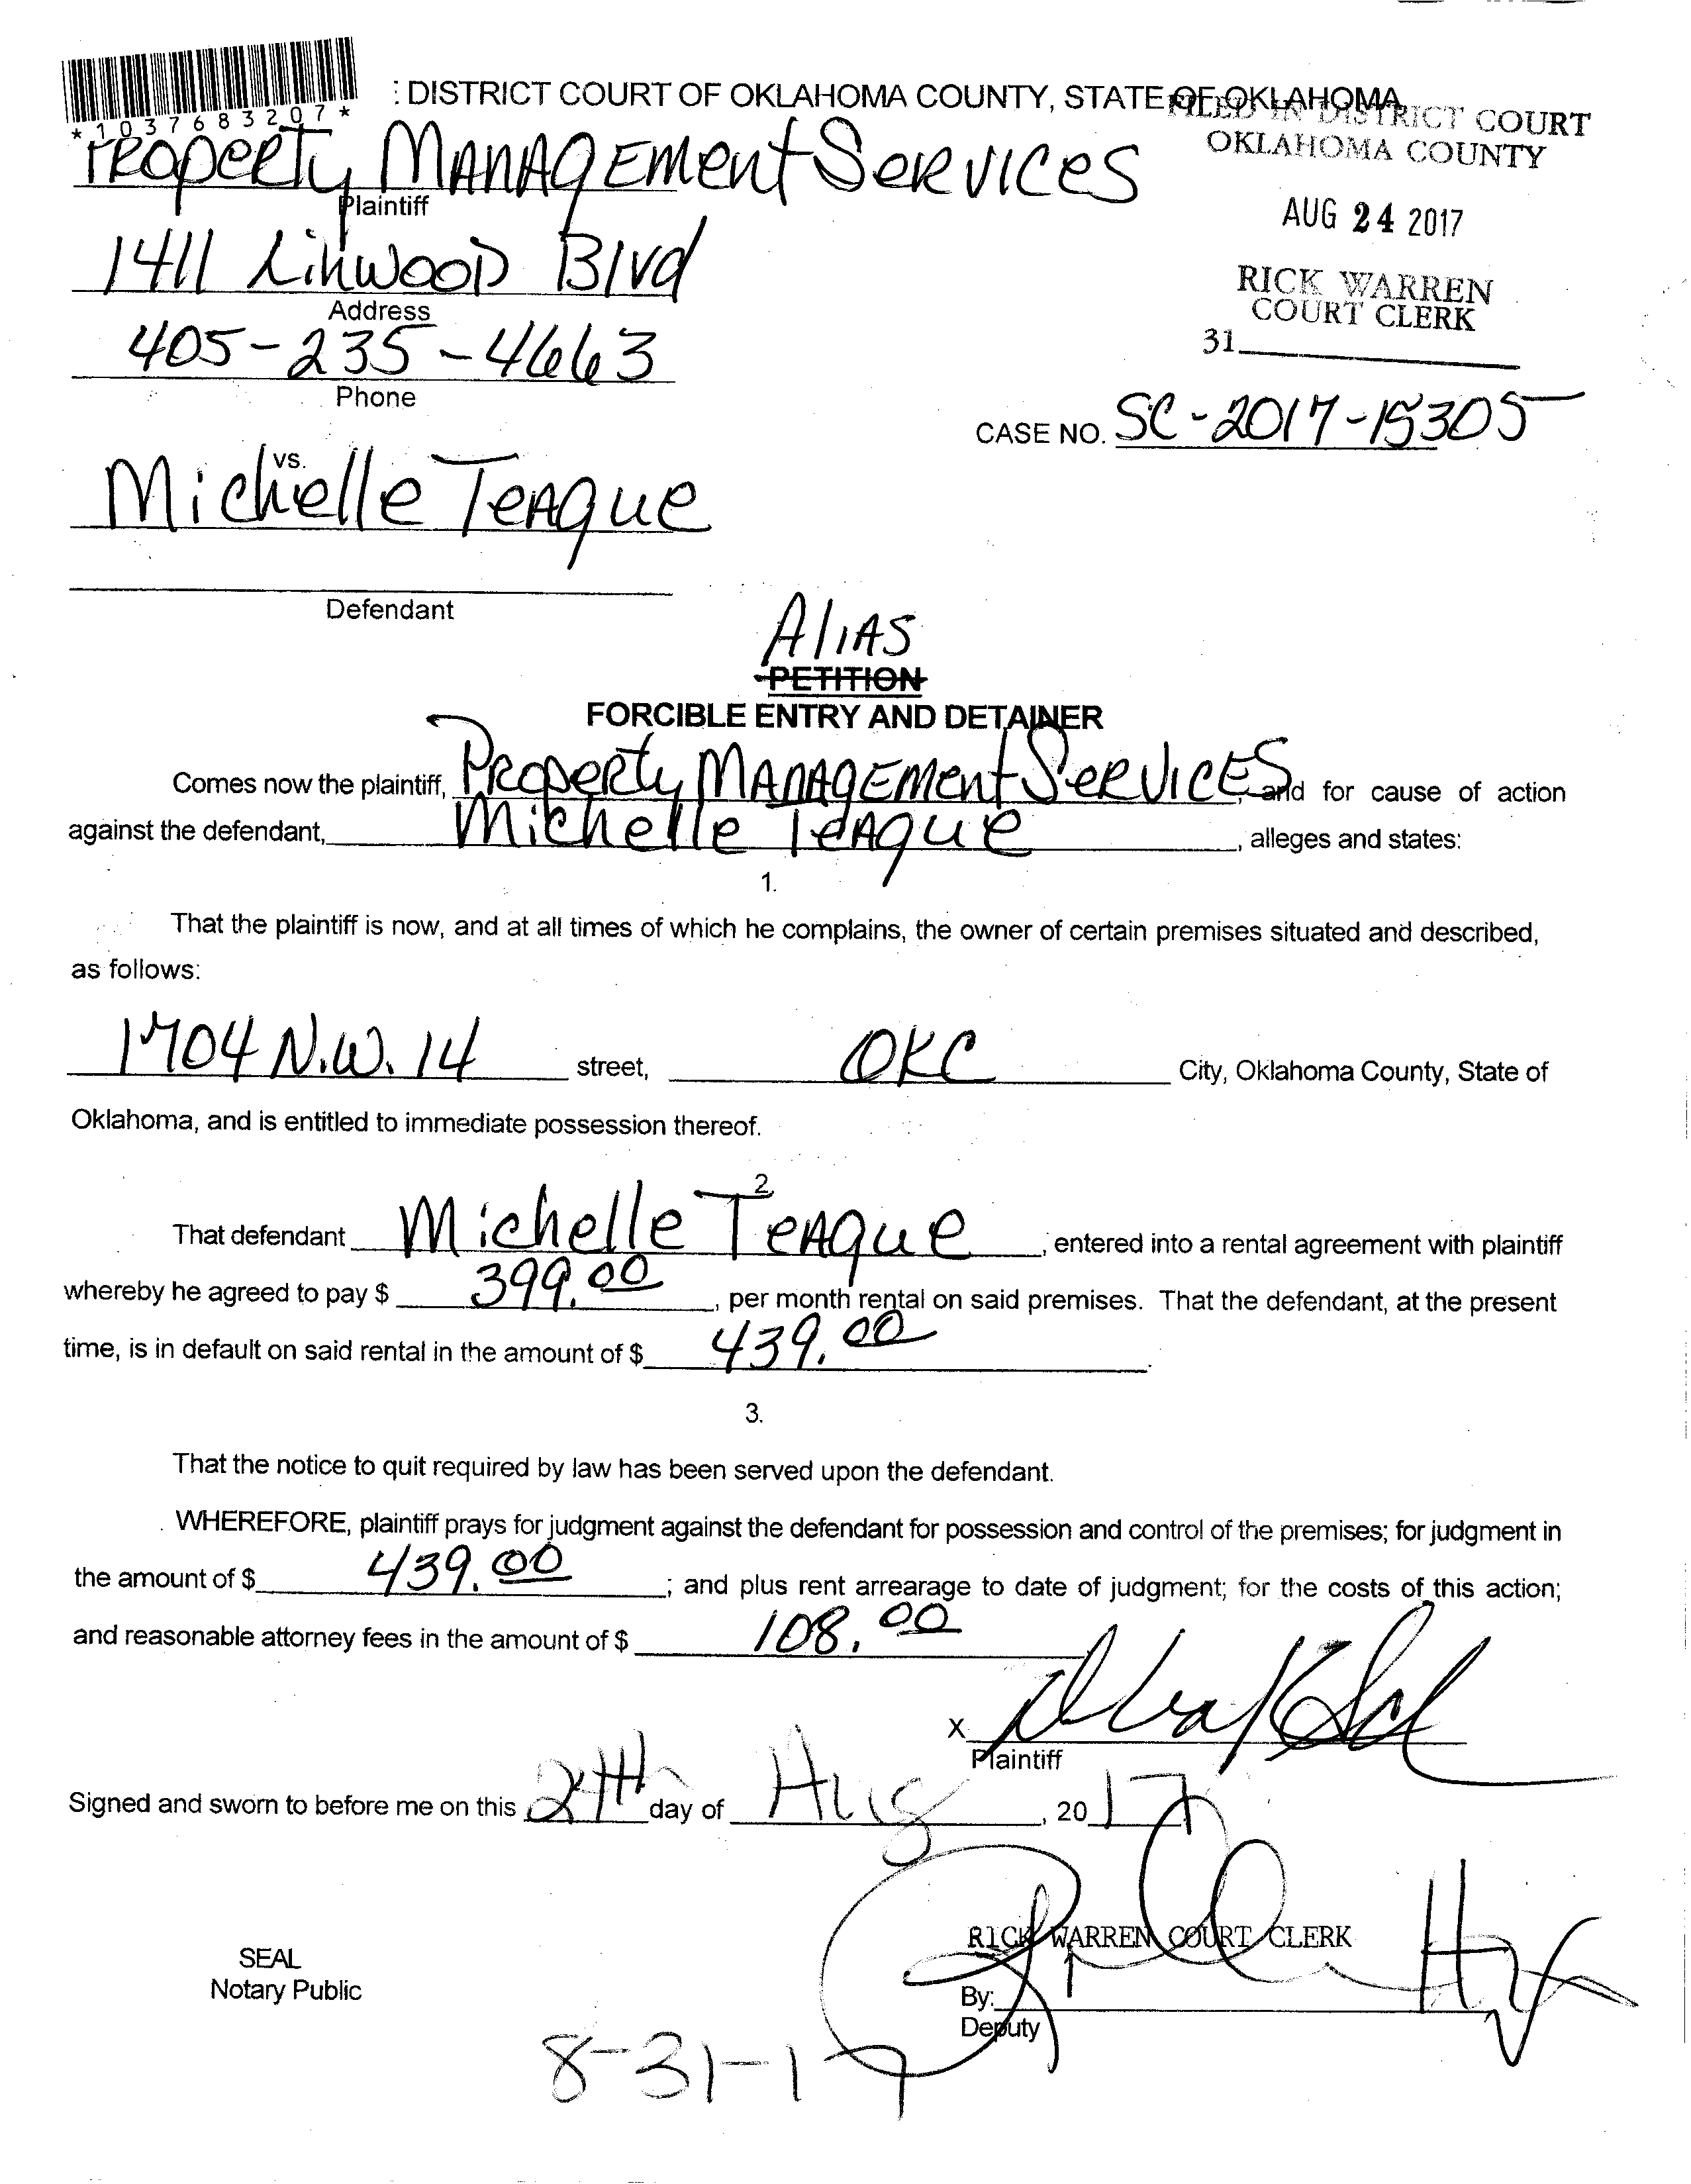 *1037683207*
: DISTRICT COURT OF OKLAHOMA COUNTY, STATE OF OKLAHOMA
FILED IN DISTRICT COURT
OKLAHOMA COUNTY
Property Management Services
Plaintiff
AUG 24 2017
1411 Linwood Blvd
Address
RICK WARREN
COURT CLERK
405-235-4663
Phone
31
CASE NO. SC-2017-15305
vs.
Michelle Teague
Defendant
Alias
PETITION
FORCIBLE ENTRY AND DETAINER
Comes now the plaintiff, Property Management Services, and for cause of action
against the defendant, Michelle Teague, alleges and states:
1.
That the plaintiff is now, and at all times of which he complains, the owner of certain premises situated and described,
as follows:
1704 N.W. 14 street, OKC City, Oklahoma County, State of
Oklahoma, and is entitled to immediate possession thereof.
2.
That defendant Michelle Teague, entered into a rental agreement with plaintiff
whereby he agreed to pay $ 399.00, per month rental on said premises. That the defendant, at the present
time, is in default on said rental in the amount of $ 439.00.
3.
That the notice to quit required by law has been served upon the defendant.
WHEREFORE, plaintiff prays for judgment against the defendant for possession and control of the premises; for judgment in
the amount of $ 439.00; and plus rent arrearage to date of judgment; for the costs of this action;
and reasonable attorney fees in the amount of $ 108.00
X
Plaintiff
Signed and sworn to before me on this 24th day of Aug, 20 17
RICK WARREN COURT CLERK
SEAL
Notary Public
By:
Deputy
8-31-17